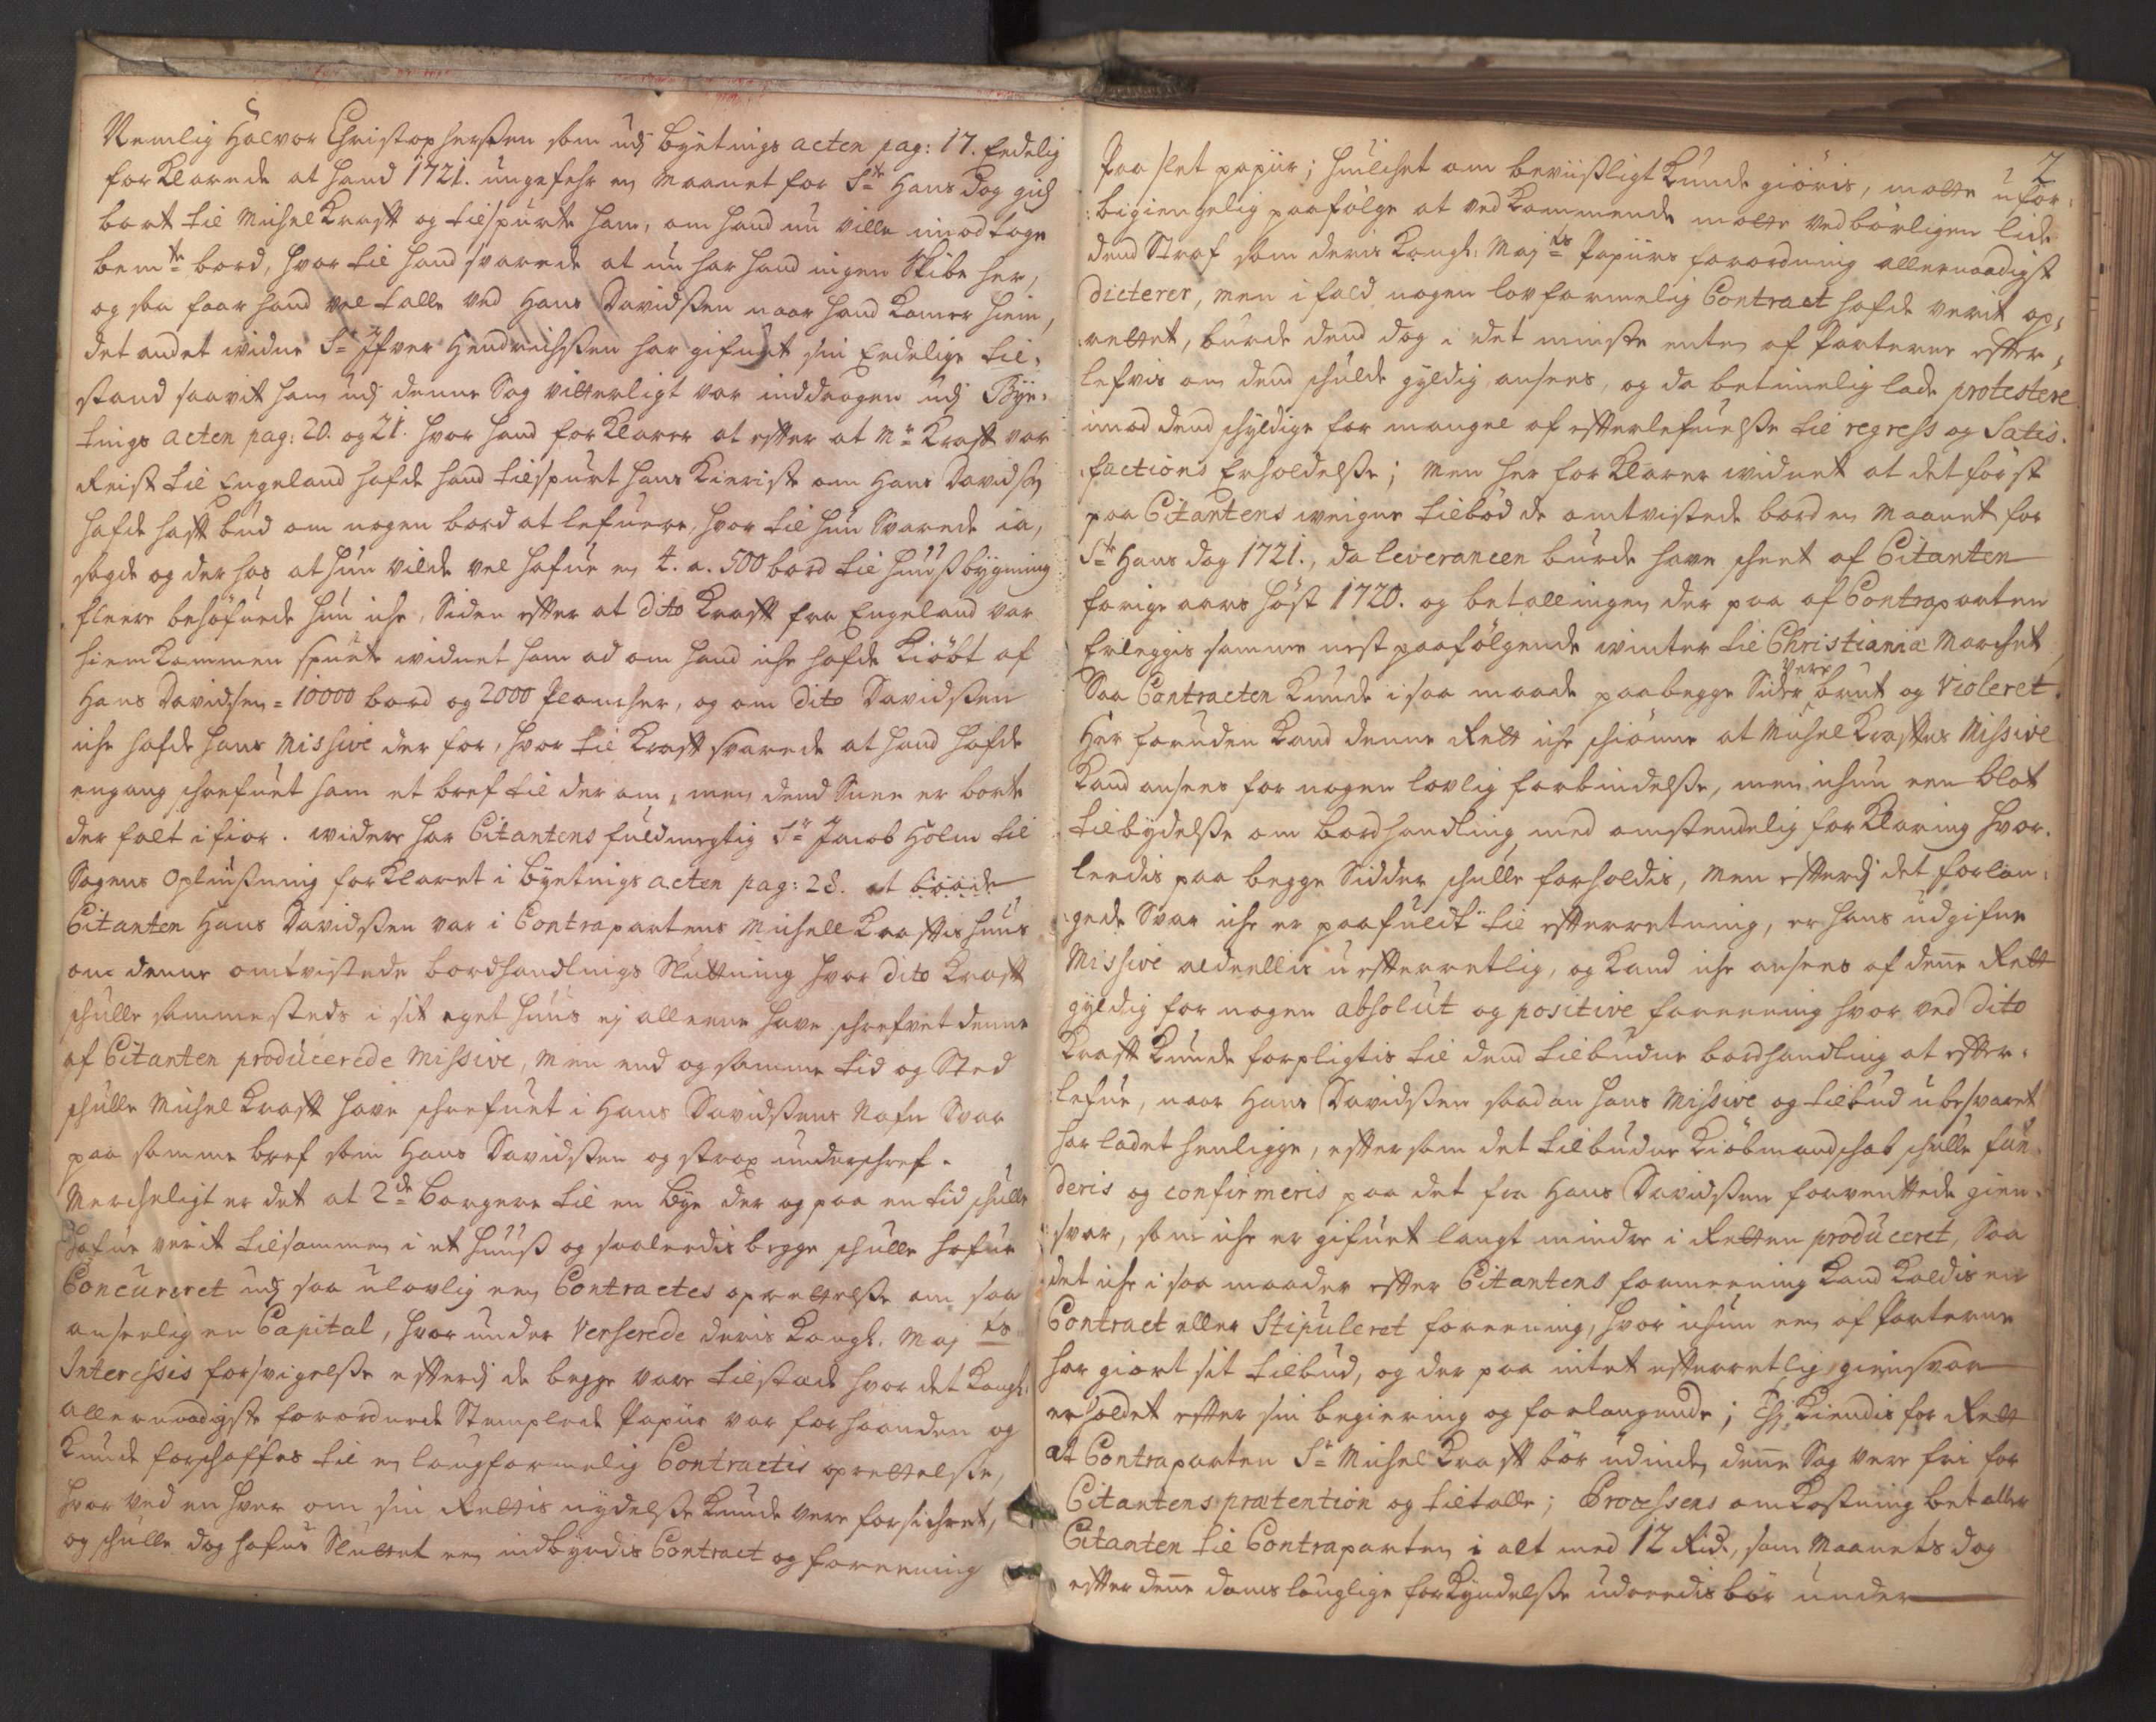 Nemlig Halvor Christophersen som udj Byetings acten pag: 17. Eedelig
forklarede at hand 1721. ungefehr en Maanet for Ste Hans Dag gich
bort til Michel Krafft og tilspurte ham, om hand nu ville imodtage
bemte bord, hvor til hand svarede at nu har hand ingen Skibe her,
og saa faar hand vel talle ved Hans Davidssen naar hand kamer hiem,
det andet widne Sr Ifver Hendrichssen har gifuet sin Eedelige til,
stand saavit ham udj denne Sag vitterligt var inddragen udj Bye-
tings acten pag: 20. og 21. hvor hand forklarer at effter at Mr Krafft var
Reist til Engeland hafde hand tilspurt hans Kieriste om Hans Davidsen
hafde hafft bud om nogen bord at lefuere, hvor til hun Svarede ia,
sagde og der hos at hun vilde vel hafue en 4. a. 500 bord til huusbygning
fleere behøfuede hun iche, Siden effter at dito Krafft fra Engeland var
hiemkommen spurte widnet ham ad om hand iche hafde Kiøbt af
Hans Davidsen = 10000 bord og 2000 Plancher, og om dito Davidssen
iche hafde hans Missive der for, hvor til Krafft svarede at hand hafde
engang schrefuet ham et bref til der om, men dend Snee er borte
der falt i fior. widere har Citantens fuldmegtig Sr Jacob Holm til
Sagens Oplysning forklaret i Byetings acten pag: 28. at baade
Citanten Hans Davidssen var i Contrapartens Michell Krafftis huus
om denne omtvistede bordhandlings Sluttning hvor dito Krafft
schulle sammesteds i sit eget huus ej alleene have schrefvet denne
af Citanten producerede Missive, Men end og samme tid og Sted
schulle Michel Krafft have schrefuet i Hans Davidssens Nafn Svar
paa samme bref som Hans Davidssen og strax underschref.
Mercheligt er det at 2de Borgere til en Bye der og paa en tid schulle
hafue verit tilsammen i et huuss og saaleedis begge schulle hafue
Concureret udj saa ulovlig een Contractes oprettelsse om saa
anseelig en Capital, hvor under Verserede deris Kongl. Maj ts
Interessis forsvigelsse effterdj de begge vare tilstæde hvor det Kongl.
allernaadigste forordnede Stemplede Papiir var forhaanden og
kunde forschaffes til en laugformelig Contractis oprettelsse,
hvor ved en hver om sin Rettis nydelsse kunde vere forsichret,
og schulle dog hafue Sluttet een indbyrdis Contract og foreening
2
Paa slet papiir; hvilchet om beviissligt kunde giøris, motte ufor-
bigiengelig paafølge at ved kommende motte ved børligen lide
dend Straf som deris Kongl: Maj ts Papiirs forordning allernaadigst
dicterer, men i fald nogen lov formelig Contract hafde verit op,
rettet, burde dend dog i det minste enten af Parterne effter,
lefvis om dend schulde gyldig ansees, og da betimelig lade protestere
imod dend schyldige for mangel af effterlefuelsse til regress og Satis.
factions Erholdelsse; Men her forklarer widnet at det først
paa Citantens weigne tilbød de omtvistede bord en Maanet for
Ste Hans dag 1721., da leverancen burde have scheet af Citanten
forige aars høst 1720. og betallingen der paa af Contraparten
Erleggis samme nest paafølgende winter til Christianiæ Marchet,
Saa Contracten kunde i saa maade paabegge Sider vere brut og Violeret.
Her foruden kand denne Rett iche schiønne at Michel Kraffts Missive
kand ansees for nogen lovlig forbindelsse, men ichun een blot
tilbydelsse om bordhandling, med omstendelig forklaring hvor-
leedis paa begge Sidder schulle forholdis, Men effterdj det forlan-
gede Svar iche er paafuldt til effterretning, er hans udgifne
Missive aldeellis ueffterretlig, og kand iche ansees af denne Rett
gyldig for nogen absolut og positive foreening hvor ved dito
Krafft kunde forpligtis til dend tilbudne bordhandling at effter-
lefue, naar Hans Davidssen saadan hans Missive og tilbud ubesvaret
har ladet henligge, efftersom det tilbudne Kiøbmandschab schulle fun-
deris og confirmeris paa det fra Hans Davidssen forventtede gien-
svar, som iche er gifuet langt mindre i Retten produceret, Saa
det iche i saa maader effter Citantens formeening kand kaldis en
Contract eller Stipuleret foreening, hvor ichun een af Parterne
har giort sit tilbud, og der paa intet effterretlig giensvar
erholdet effter sin begiering og forlangende; Thj kiendis for Rett
at Contraparten Sr Michel Krafft bør udinden denne Sag vere fri for
Citantens prætention og tiltalle; Processens omkostning betaller
Citanten til Contraparten i alt med 12 Rdr, som Maanets dag
effter denne doms lauglige forkyndelsse udreedis bør under